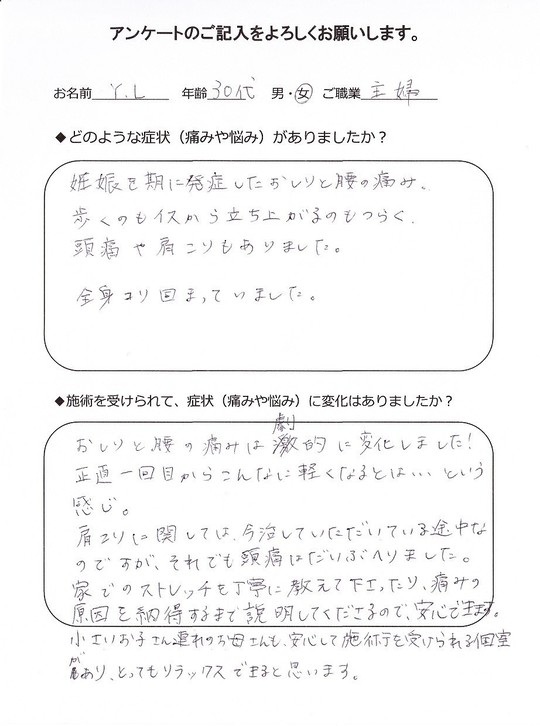 アンケートのご記入をよろしくお願いします。
お名前 Y.L 年齢 30代 男・女 ご職業 主婦
◆どのような症状(痛みや悩み)がありましたか?
妊娠を期に発症したおしりと腰の痛み、
歩くのもイスから立ち上がるのもつらく、
頭痛や肩こりもありました。
全身コリ固まっていました。
◆施術を受けられて、症状(痛みや悩み)に変化はありましたか?
おしりと腰の痛みは劇的に変化しました!
正直一回目からこんなに軽くなるとは…という
感じ。
肩コリに関しては、今治していただいている途中な
のですが、それでも頭痛はだいぶへりました。
家でのストレッチを丁寧に教えて下さったり、痛みの
原因を納得するまで説明してくださるので、安心できます。
小さいお子さん連れのお母さんも、安心して施術を受けられる個室
があり、とってもリラックスできると思います。